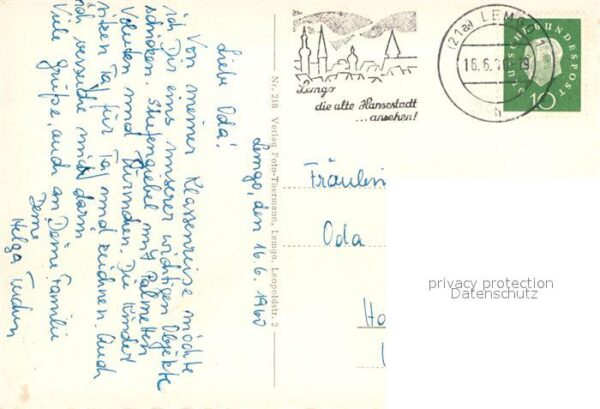 Lemgo, den 16.6.1960
Liebe Oda!
Von meiner Klassenreise möchte
ich Dir eins unserer wichtigen Objekte
schicken. Stufengiebel mit Palmetten
Voluten und Türmchen. Die Kinder
sitzen Tag für Tag und zeichnen. Auch
ich versuche mich darin
Viele Grüße auch an Deine Familie
Deine
Helga
Nr. 218 Verlag Foto-Thermann, Lemgo, Leopoldstr. 2
Lemgo
die alte Hansestadt
...ansehen!
(21a) LEMGO 1
16.6.
h
DEUTSCHE BUNDESPOST
10
Fräulein
Oda
privacy protection
Datenschutz